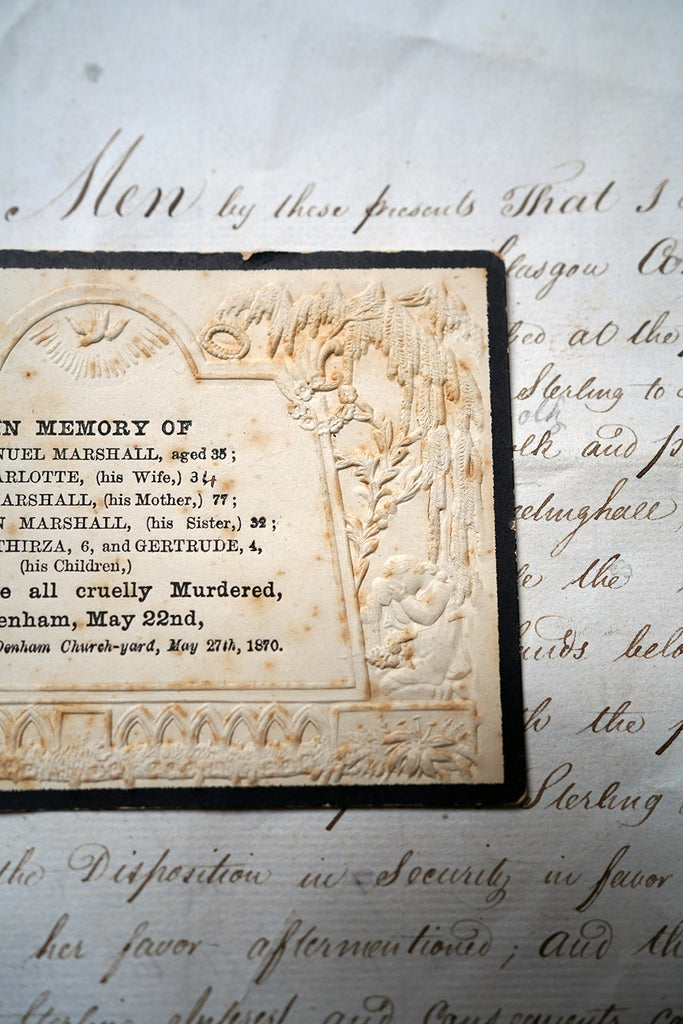 Men by these presents That I
lasgow Co
ed at the
Sterling to
olk
lk and p
elinghall
e the
ands belo
h the p
Sterling
the Disposition in Security in favor
her favor aftermentioned; and th
Sterling Interest and consequents co
IN MEMORY OF
NUEL MARSHALL, aged 35;
ARLOTTE, (his Wife,) 34
MARSHALL, (his Mother,) 77;
N MARSHALL, (his Sister,) 32;
THIRZA, 6, and GERTRUDE, 4,
(his Children,)
e all cruelly Murdered,
enham, May 22nd,
Denham Church-yard, May 27th, 1870.